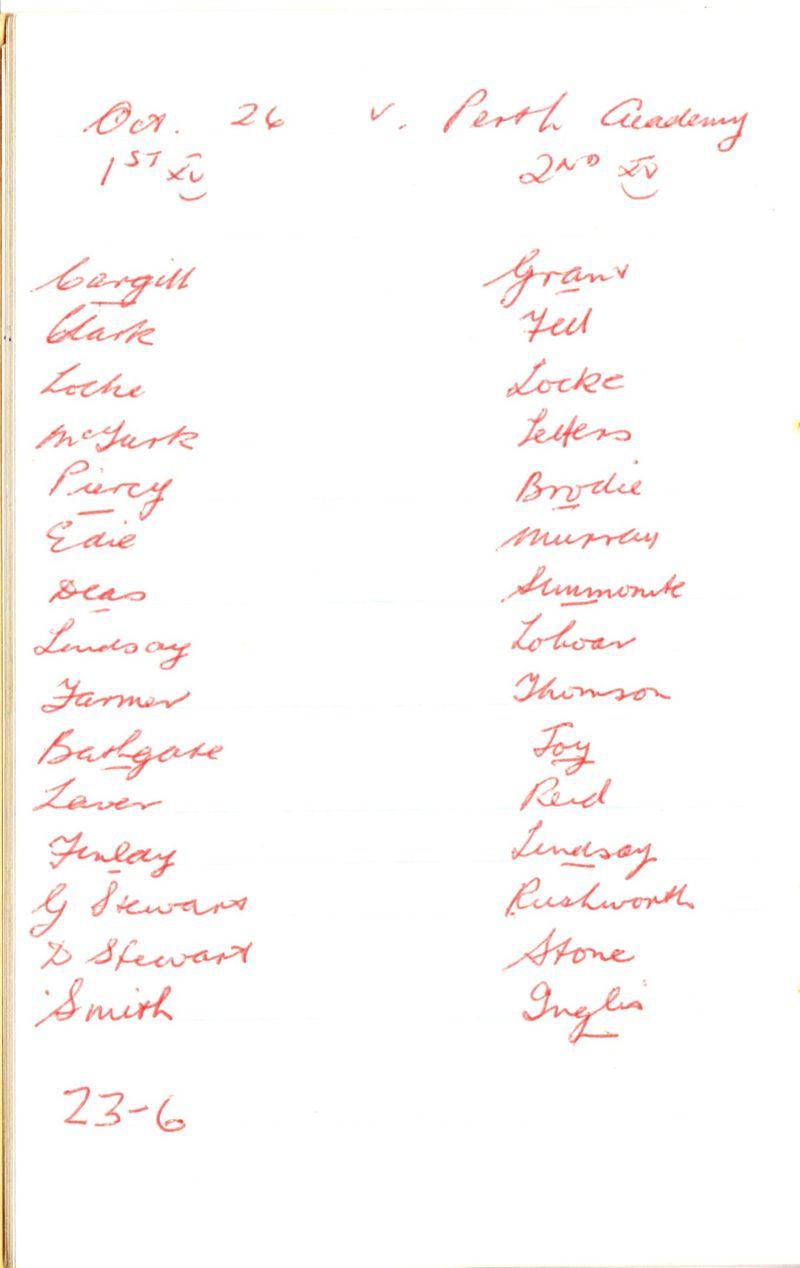 Oct. 26 v. Perth Academy
1ST XV 2ND XV
Cargill Grant
Clark Fell
Locke Locke
McTurk Letters
Piercy Brodie
Edie Murray
Deas
Lindsay
Farmer Thomson
Bathgate Joy
Laver Reid
Finlay Lindsay
G Stewart Rushworth
D Stewart Stone
Smith Inglis
23-6